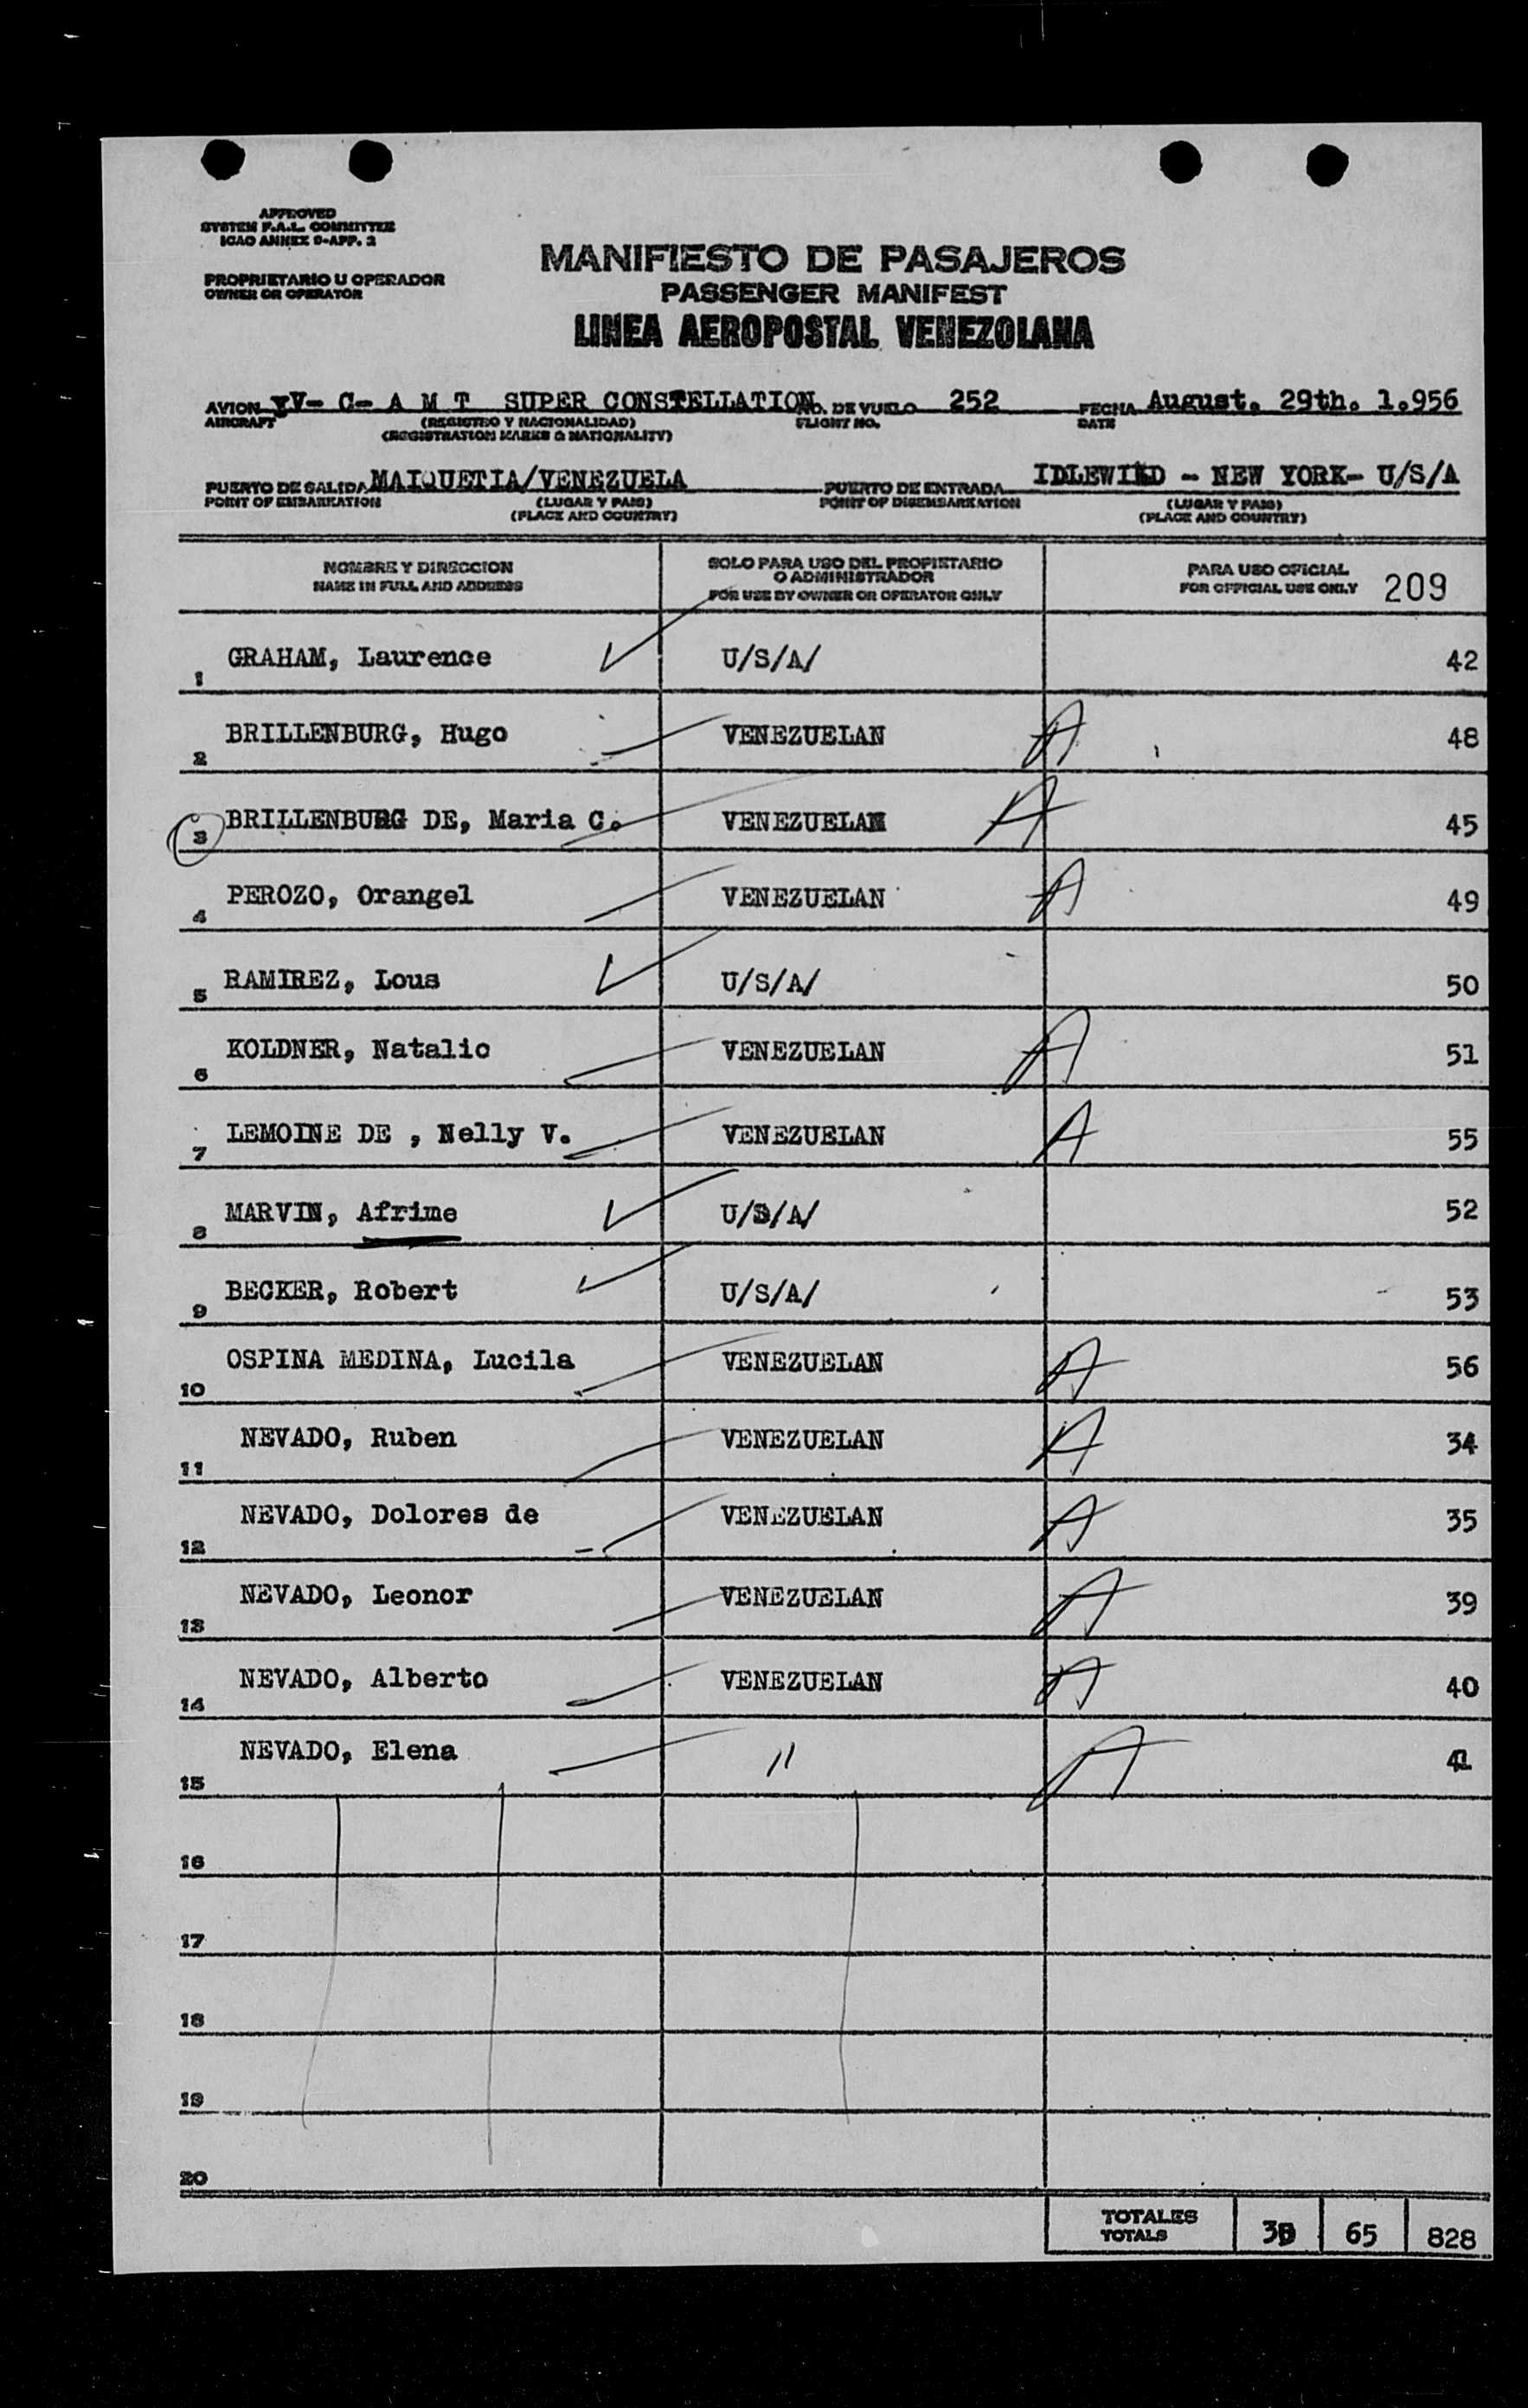 APPROVED
SYSTEM F.A.L. COMMITTEE
ICAO ANNEX 9-APP. 2
PROPRIETARIO U OPERADOR
OWNER OR OPERATOR
MANIFIESTO DE PASAJEROS
PASSENGER MANIFEST
LINEA AEROPOSTAL VENEZOLANA
AVION YV- C- A M T SUPER CONSTELLATION NO. DE VUELO 252 FECHA August. 29th. 1.956
AIRCRAFT (REGISTRO Y NACIONALIDAD) FLIGHT NO. DATE
(REGISTRATION MARKS & NATIONALITY)
PUERTO DE SALIDA MAIQUETIA/VENEZUELA PUERTO DE ENTRADA IDLEWILD - NEW YORK- U/S/A
POINT OF EMBARKATION (LUGAR Y PAIS) POINT OF DISEMBARKATION (LUGAR Y PAIS)
(PLACE AND COUNTRY) (PLACE AND COUNTRY)
NOMBRE Y DIRECCION SOLO PARA USO DEL PROPIETARIO O ADMINISTRADOR PARA USO OFICIAL
NAME IN FULL AND ADDRESS FOR USE BY OWNER OR OPERATOR ONLY FOR OFFICIAL USE ONLY 209
1 GRAHAM, Laurence U/S/A/ 42
2 BRILLENBURG, Hugo VENEZUELAN A 48
3 BRILLENBURG DE, Maria C. VENEZUELAN A 45
4 PEROZO, Orangel VENEZUELAN A 49
5 RAMIREZ, Lous U/S/A/ 50
6 KOLDNER, Natalio VENEZUELAN A 51
7 LEMOINE DE , Nelly V. VENEZUELAN A 55
8 MARVIN, Afrime U/S/A/ 52
9 BECKER, Robert U/S/A/ 53
10 OSPINA MEDINA, Lucila VENEZUELAN A 56
11 NEVADO, Ruben VENEZUELAN A 34
12 NEVADO, Dolores de VENEZUELAN A 35
13 NEVADO, Leonor VENEZUELAN A 39
14 NEVADO, Alberto VENEZUELAN A 40
15 NEVADO, Elena " A 41
16
17
18
19
20
TOTALES
TOTALS 65 828